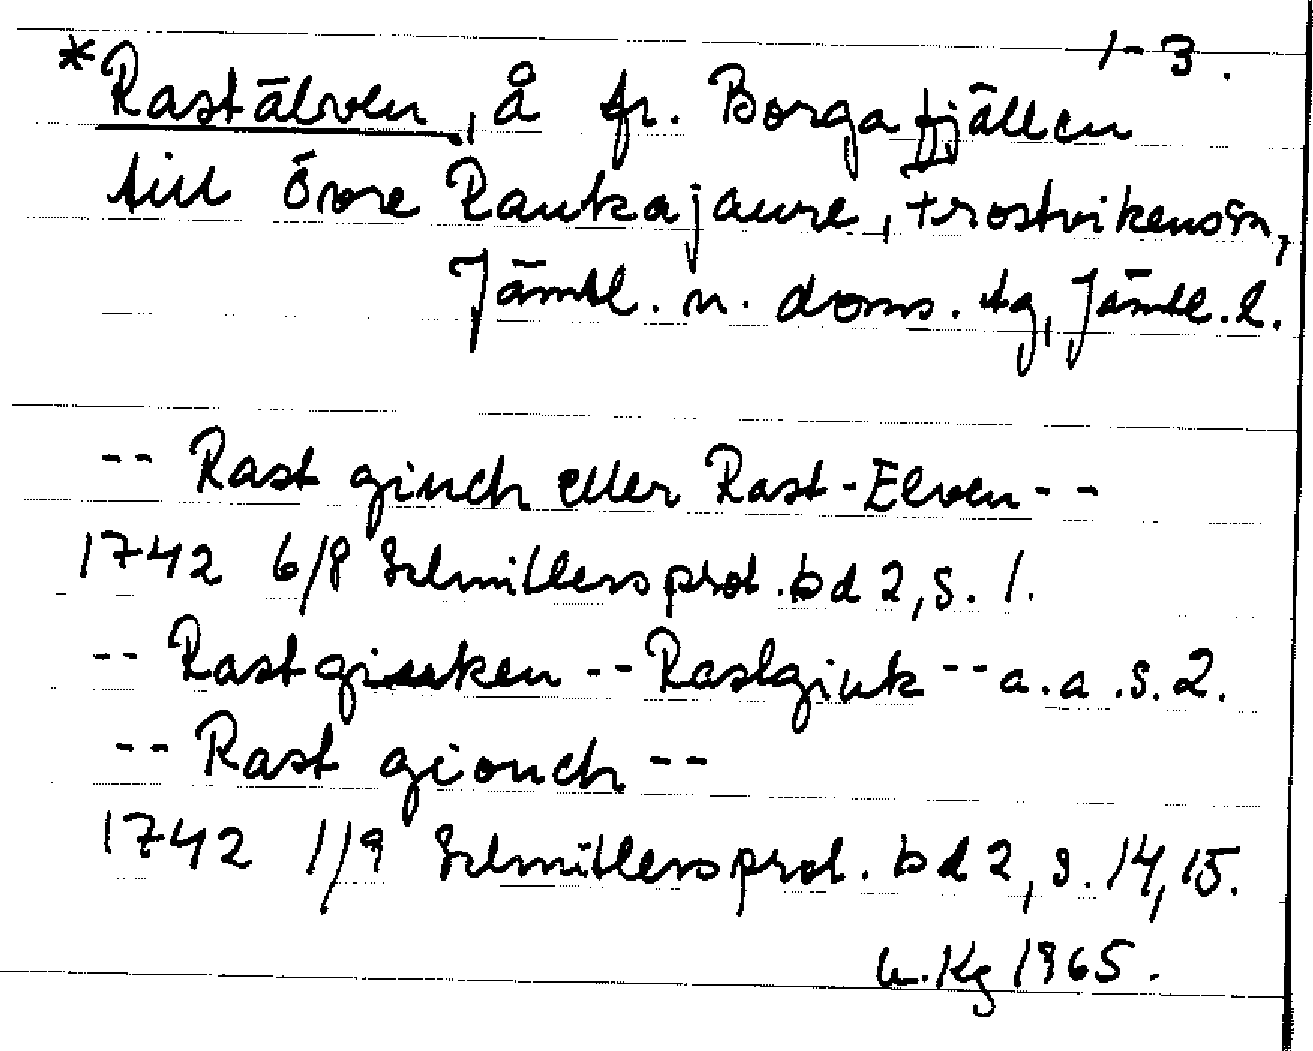 1-3.
*Rastälven, å fr. Borgafjällen
till Övre Raukajaure, Frostvikens sn,
Jämtl. n. doms. tg, Jämtl. l.
-- Rast giuch eller Rast-Elven --
1742 6/8 Schnitlers prot. bd 2, s. 1.
-- Rastgiuken -- Rastgiuk -- a.a.s.2.
-- Rast giouch --
1742 1/9 Schnitlers prot. bd 2, s. 14, 15.
Kg 1965.